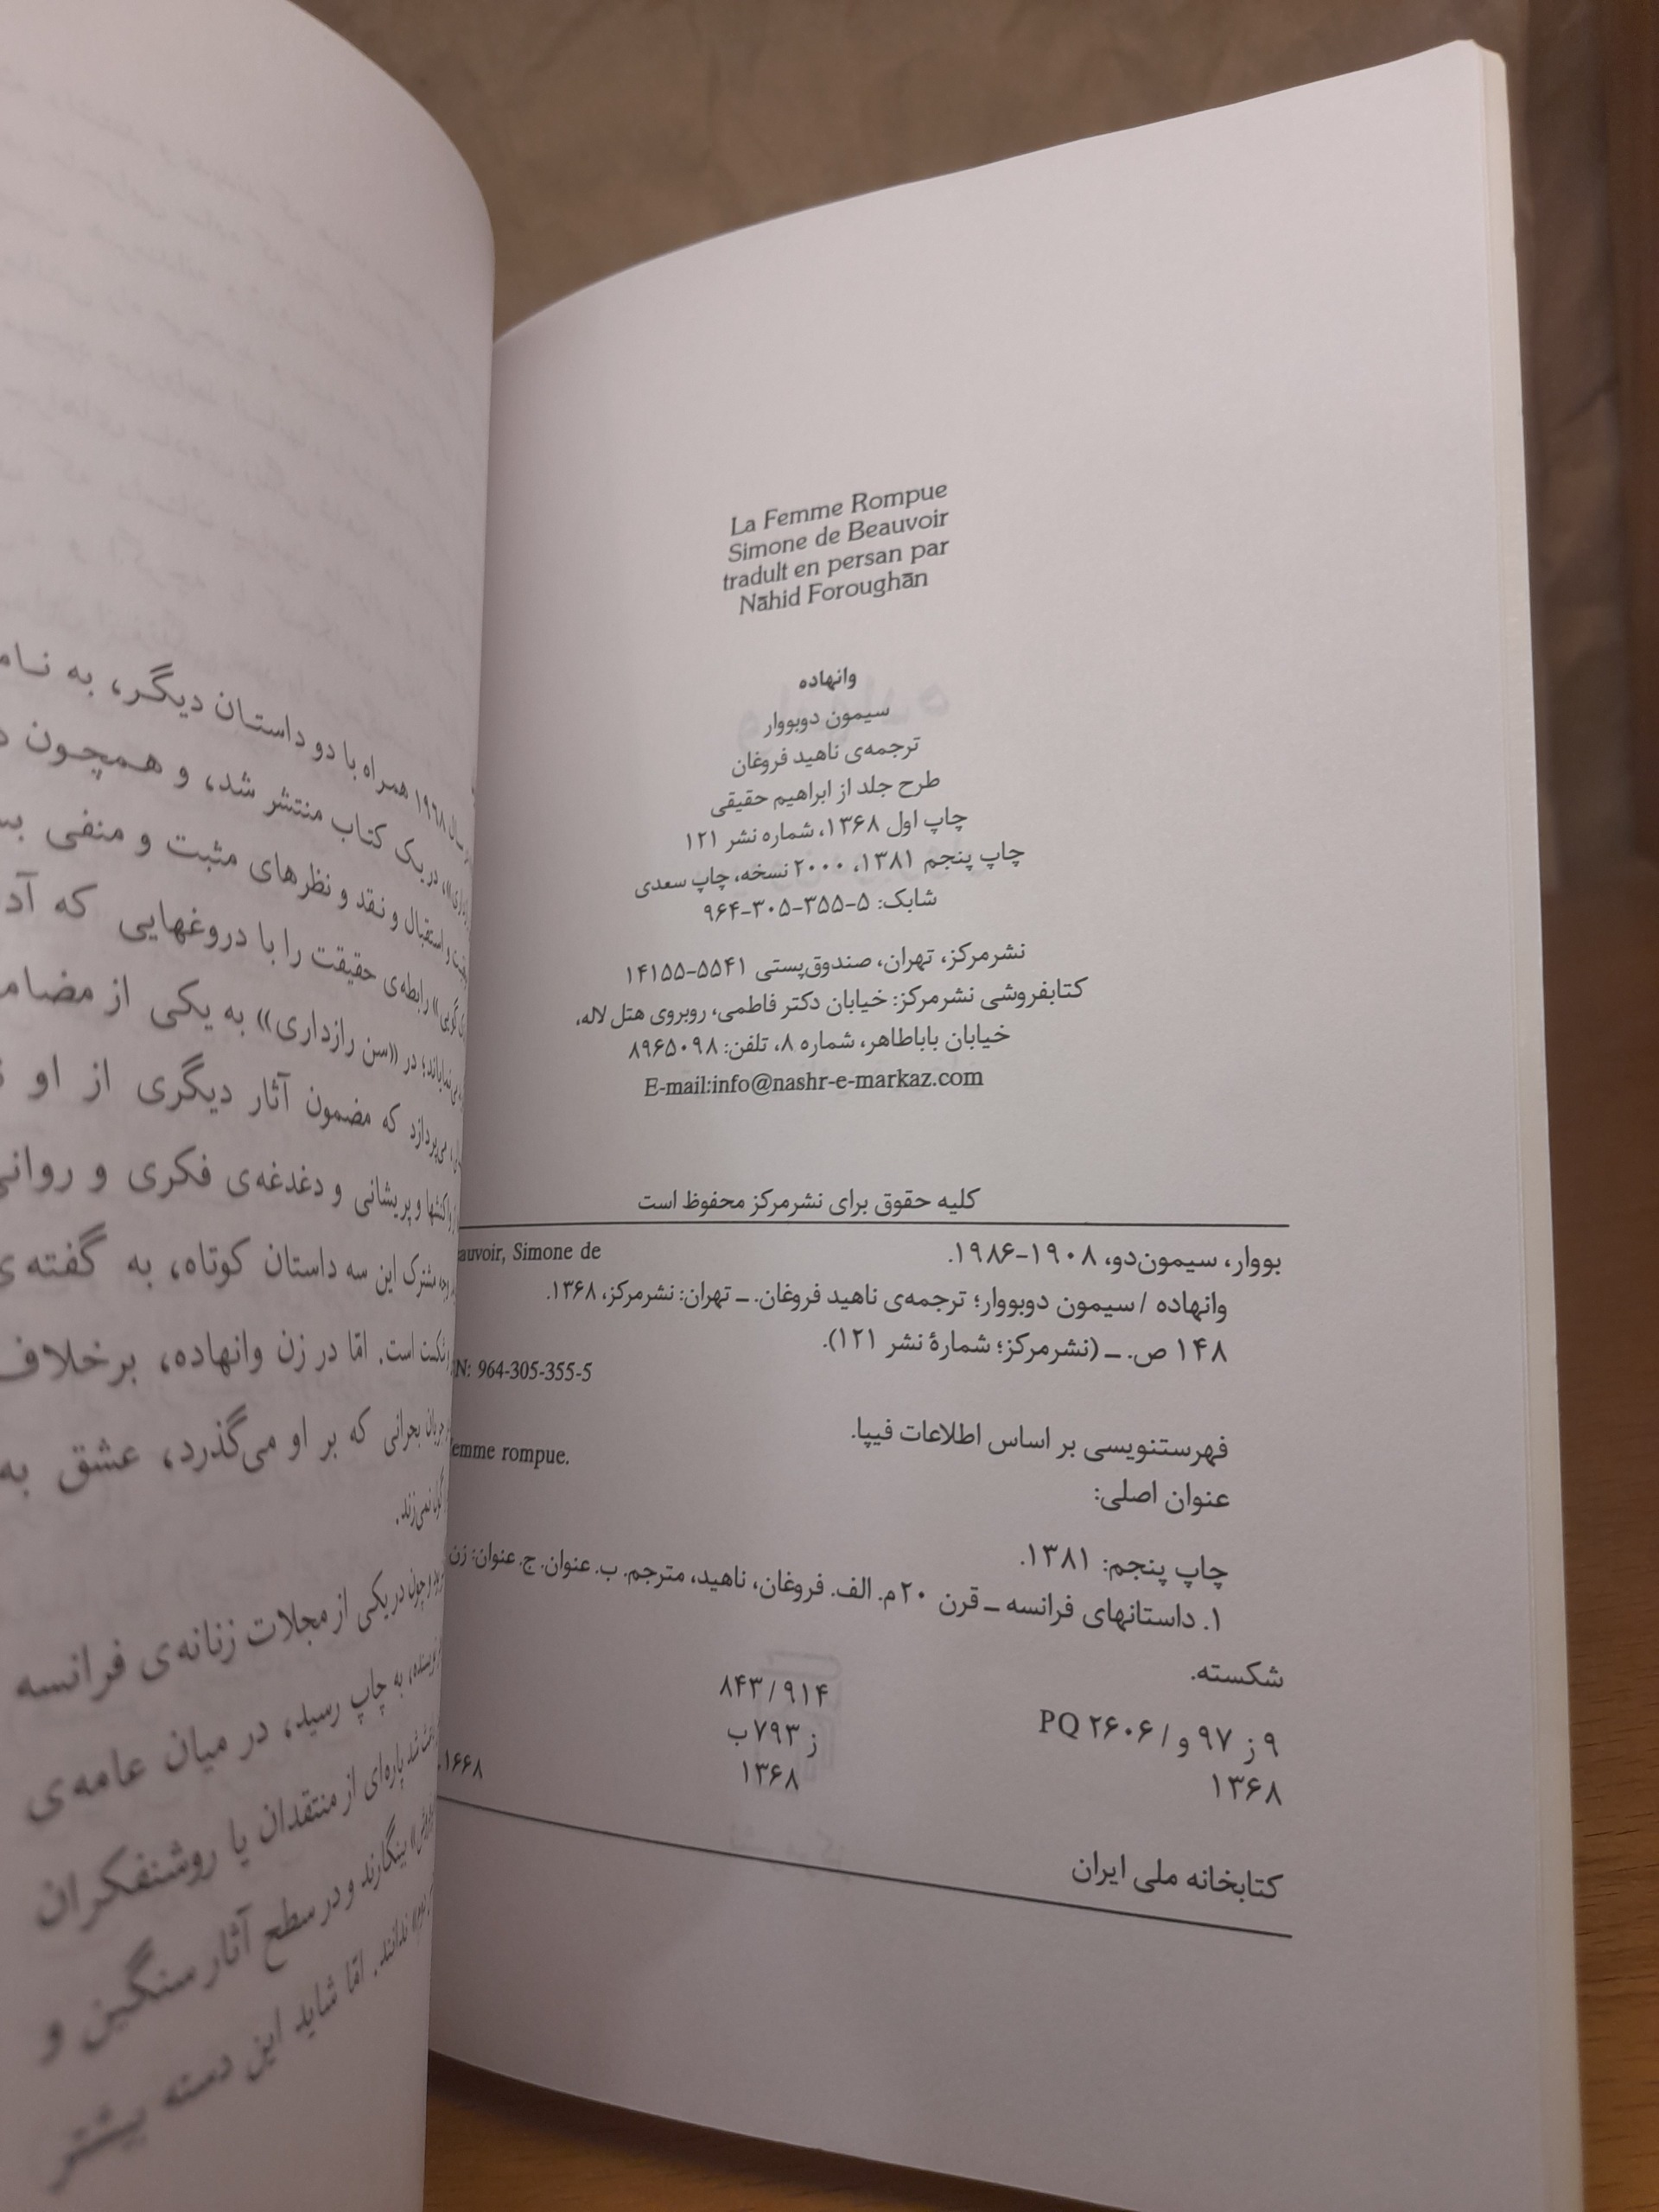 La Femme Rompue
Simone de Beauvoir
tradult en persan par
Nāhid Foroughān
وانهاده
سیمون دوبووار
ترجمه‌ی ناهید فروغان
طرح جلد از ابراهیم حقیقی
چاپ اول ۱۳۶۸، شماره نشر ۱۲۱
چاپ پنجم ۱۳۸۱، ۲۰۰۰ نسخه، چاپ سعدی
شابک: ۵-۳۵۵-۳۰۵-۹۶۴
نشرمرکز، تهران، صندوق‌پستی ۵۵۴۱-۱۴۱۵۵
کتابفروشی نشرمرکز: خیابان دکتر فاطمی، روبروی هتل لاله،
خیابان باباطاهر، شماره ۸، تلفن: ۸۹۶۵۰۹۸
E-mail:info@nashr-e-markaz.com
کلیه حقوق برای نشرمرکز محفوظ است
بووار، سیمون‌دو، ۱۹۰۸-۱۹۸۶. auvoir, Simone de
وانهاده / سیمون دوبووار؛ ترجمه‌ی ناهید فروغان. ــ تهران: نشرمرکز، ۱۳۶۸.
۱۴۸ ص. ــ (نشرمرکز؛ شمارهٔ نشر ۱۲۱).
N: 964-305-355-5
فهرستنویسی بر اساس اطلاعات فیپا.
عنوان اصلی: emme rompue.
چاپ پنجم: ۱۳۸۱.
۱. داستانهای فرانسه ــ قرن ۲۰م. الف. فروغان، ناهید، مترجم. ب. عنوان. ج. عنوان: زن
شکسته.
۹ ز ۹۷ و / PQ ۲۶۰۶ ۸۴۳/۹۱۴
۱۳۶۸ ز ۷۹۳ ب
۱۳۶۸ ۱۶۶۸
کتابخانه ملی ایران
سال ۱۹۶۸ همراه با دو داستان دیگر، به
در یک کتاب منتشر شد، و همچون
و استقبال و نقد و نظرهای مثبت و منفی
رابطه‌ی حقیقت را با دروغهایی که
در «سن رازداری» به یکی از
می‌پردازد که مضمون آثار دیگری از او
و پریشانی و دغدغه‌ی فکری و
مشترک این سه داستان کوتاه، به گفته‌ی
است. امّا در زن وانهاده، برخلاف
بحرانی که بر او می‌گذرد، عشق به
نمی‌زند.
در یکی از مجلات زنانه‌ی فرانسه
به چاپ رسید، در میان عامه‌ی
پاره‌ای از منتقدان یا روشنفکران
بینگارند و در سطح آثار سنگین و
ندانند. امّا شاید این دسته بیشتر